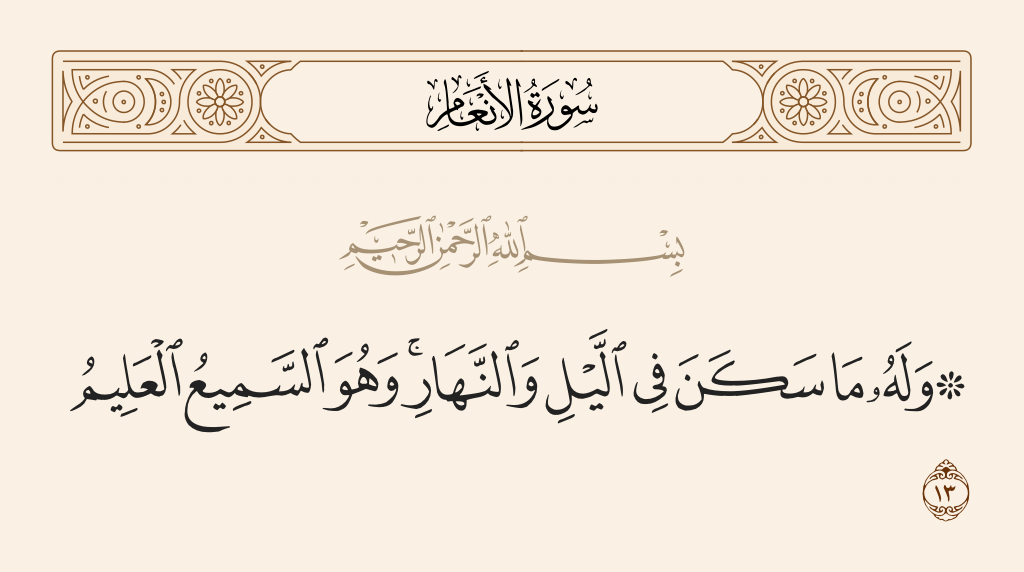 سُورَةُ الأَنْعَامِ
بِسْمِ ٱللَّهِ ٱلرَّحْمَٰنِ ٱلرَّحِيمِ
۞وَلَهُۥ مَا سَكَنَ فِى ٱلَّيْلِ وَٱلنَّهَارِ ۚ وَهُوَ ٱلسَّمِيعُ ٱلْعَلِيمُ
١٣